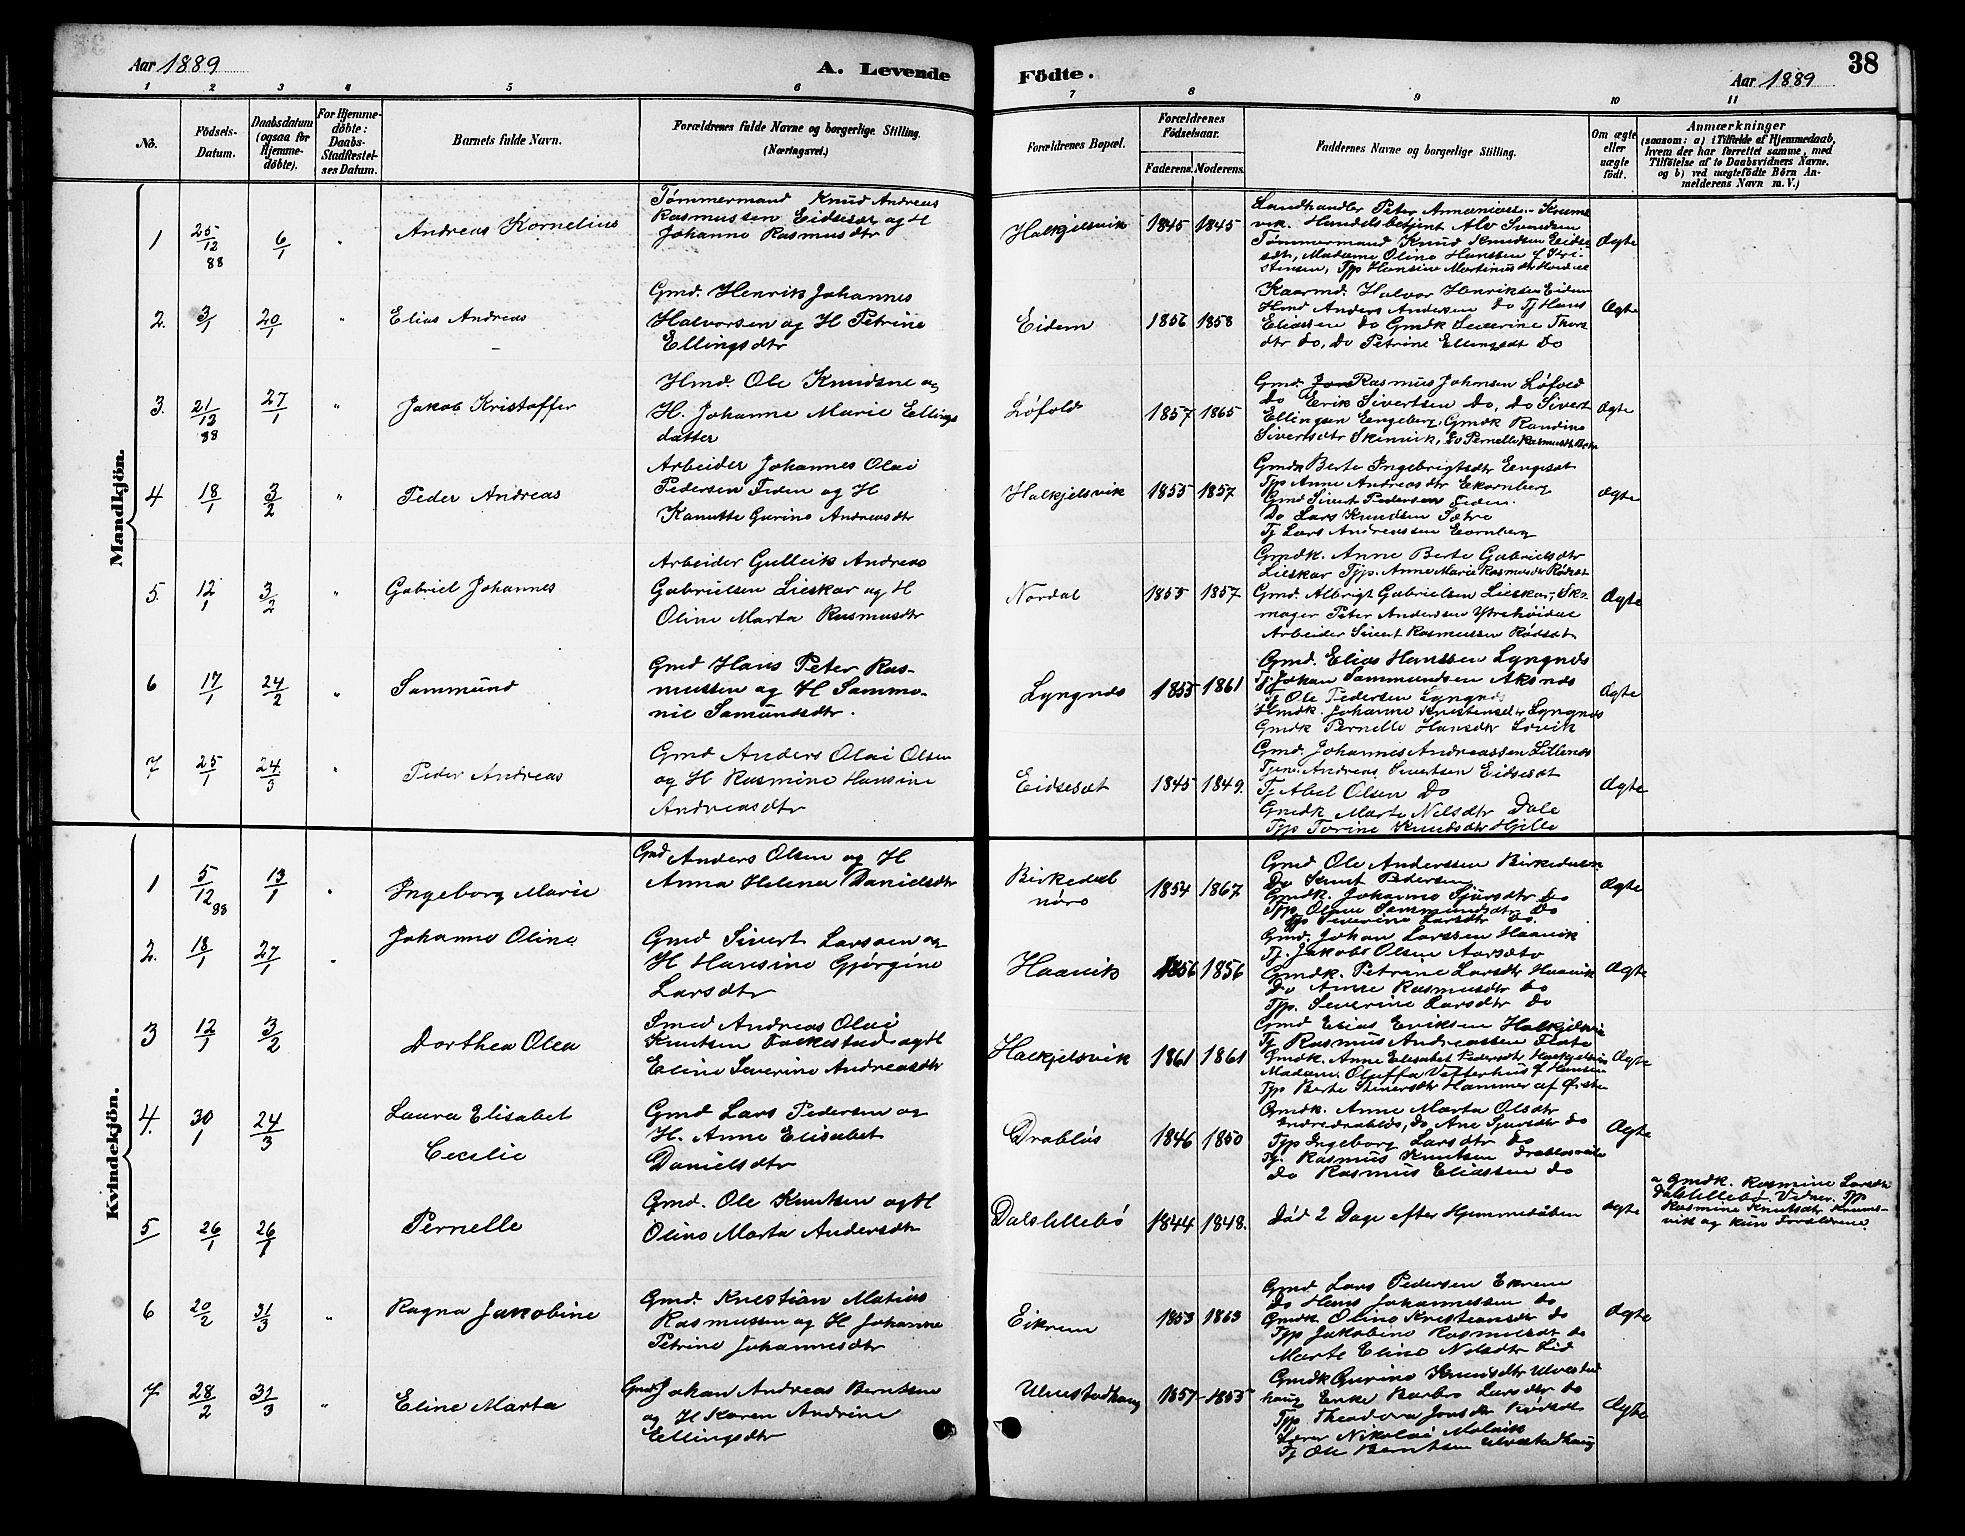 Aar 1889
A. Levende
Födte.
Aar 1889
38
1 2 3 4 5 6 7 8 9 10 11
No.
Födsels-Datum.
Daabsdatum (ogsaa for Hjemme-döbte).
For Hjemme-döbte: Daabs-Stadfæstel-ses Datum.
Barnets fulde Navn.
Forældrenes fulde Navne og borgerlige Stilling. (Næringsvei.)
Forældrenes Bopæl.
Forældrenes Födselsaar.
Faderens. Moderens.
Faddernes Navne og borgerlige Stilling.
Om ægte eller uægte født.
Anmærkninger
(saasom: a) i Tilfælde af Hjemmedaab,
hvem der har forrettet samme, med
Tilföielse af to Daabsvidners Navne,
og b) ved uægtefödte Börn An-
melderens Navn m. V.)
Mandkjön.
1 25/12 88 6/1 " Andreas Kornelius
Tømmermand Knud Andreas
Rasmussen Eidsæt og H
Johanne Rasmusdtr
Halkjelsvik 1845 1845
Landhandler Peter
vik. Handelsbetjent Alv Svendsen
Tømmermand Knud Knudsen
Madame Oline Hanssen f Kri-
stensen, Typ Hansine Martinusdtr
Ægte
2. 3/1 20/1 " Elias Andreas
Gmd. Henrik Johannes
Halvorsen og H Petrine
Ellingsdtr
Eidem 1856 1858
Kaarmd. Halvor Henriksen Eidem
Hmd Anders Andersen Do Tj Hans
Eliassen Do Gmdk Severine Thors
dtr do, Do Petrine Ellingsdt Do
Ægte
3. 21/12 88 27/1 " Jakob Kristoffer
Hmd. Ole Knudsne og
H. Johanne Marie Ellings
datter
Løfold 1857 1865
Gmd. Rasmus Johnsen Løfold
Do Erik Sivertsen Do, Do Sivert
Ellingsen Engeberg, Gmdk Randine
Sivertsdtr Skinvik, Do Pernelle Rasmusdt
Ægte
4 18/1 3/2 " Peder Andreas
Arbeider Johannes Olai
Pedersen Feden og H
Kanutte Gurine Andreasdtr
Halkjelsvik 1855 1857
Gmdk Berte Ingebrigtsdtr Engeset
Typ Anne Andreasdtr Ekornberg
Gmd Sivert Pedersen Feden.
Do Lars Knudsen Sætre
Tj Lars Andreassen
Ægte
5. 12/1 3/2 " Gabriel Johannes
Arbeider Gulleik Andreas
Gabrielsen Lieskar og H
Oline Marta Rasmusdtr
Nordal 1855 1857
Gmdk. Anne Berte Gabrielsdtr
Lieskar Typ. Anne Marie Rasmusdtr Rødsæt
Gmd. Albrigt Gabrielsen Lieskar, Sko-
mager Peter Andersen
Arbeider Sivert Rasmussen Rødsæt
Ægte
6 17/1 24/2 " Sammund
Gmd Hans Peter Ras-
mussen og H Sammo-
nie Samundsdtr.
Lyngnes 1855 1861
Gmd. Elias Hanssen Lyngnes
Tj Johan Sammundsen Aksnes
Tj Ole Pedersen Lyngnes
Hmdk. Johanne Kristensdtr Lyngnes
Gmdk Pernelle Hansdtr Løvik
Ægte
7 25/1 24/3 " Peder Andreas
Gmd Anders Olai Olsen
og H Rasmine Hansine
Andreasdtr
Eidsesæt 1845 1849.
Gmd. Johannes Andreassen Littlenes
Tjen. Andreas Sivertsen Eidsesæt
Tj Abel Olsen Do
Gmdk Marte Nelsdtr Dale
Typ Torine Knudsdtr Hjelle
Ægte
Kvindekjön.
1 5/12 88 13/1 " Ingeborg Marie
Gmd Anders Olsen og H
Anna Helene Danielsdtr
Birkedal nøro 1854 1867
Gmd Ole Anderssen
Do Knut Pedersen
Gmdk. Johanne Sjursdtr Do
Typ Oline Sammundsdtr Do
Typ Severine Larsdtr Do.
Ægte
2. 18/1 27/1 " Johanne Oline
Gmd Sivert Larssen og
H Hansine Gjørgine
Larsdtr
Haavik 1856 1856
Gmd. Johan Larssen Haavik
Tj. Jakob Olsen Aarsæto
Gmdk. Petrine Larsdtr Haavik
Do Anne Rasmusdtr Do
Typ. Severine Larsdtr Do
Ægte
3 12/1 3/2 Dorthea Olea
Smed Andreas Olai
Knutsen Folkestad og H
Eline Severine Andreasdtr
Halkjelsvik 1861 1861
Gmd Elias Eriksen Halkjelsvik
Tj Rasmus Andreassen Flote
Gmdk. Anne Elisabet Pedersdtr Halkjelsvik
Madam. Oluffa Vatterhus f Hansen
Typ Berte Steinersdtr Hammer af Ørsten
Ægte
4. 30/1 24/3 Laura Elisabet
Cecelie
Gmd Lars Pedersen og
H. Anne Elisabet
Danielsdtr
Drabløs 1846 1850
Gmdk. Anne Marta Olsdtr
Indredrabløs, Do Ane Sjursdtr do
Typ Ingeborg Larsdtr do
Tj. Rasmus Knutsen
Do Rasmus Eliassen do
Ægte
5 26/1 26/1 Pernelle
Gmd. Ole Knutsen og H
Oline Marta Andersdtr
Dalslillebø 1844 1848.
Død 2 Dage efter Hjemmedåben
Ægte
a Gmdk. Rasmine Larsdtr
Dalslillebø. Vidner. Typ
Rasmine Knutsdtr
vik og kun Forældrene.
6 20/2 31/3 " Ragna Jakobine
Gmd. Kristian Matias
Rasmussen og H Johanne
Petrine Johannesdtr
Eikrem 1853 1863
Gmd Lars Pedersen Ekrem
do Hans Johannessen do
Gmdk Oline Kristiansdtr do
Typ Jakobine Rasmusdtr do
Marte Eline Nelsdtr Lid
Ægte
7 28/2 31/3 " Eline Marta
Gmd Johan Andreas Berntsen
og H Karen Andrine
Ellingsdtr
Ulvestadhaug 1857 1855
Gmdk Gurine Knudsdtr Ulvestad
haug Enke Barbro Larsdtr do
Typ. Theodora Jonsdtr Rødsæt
Lærer Nikolai Molvik
Tj Ole Berntsen Ulvestadhaug
Ægte